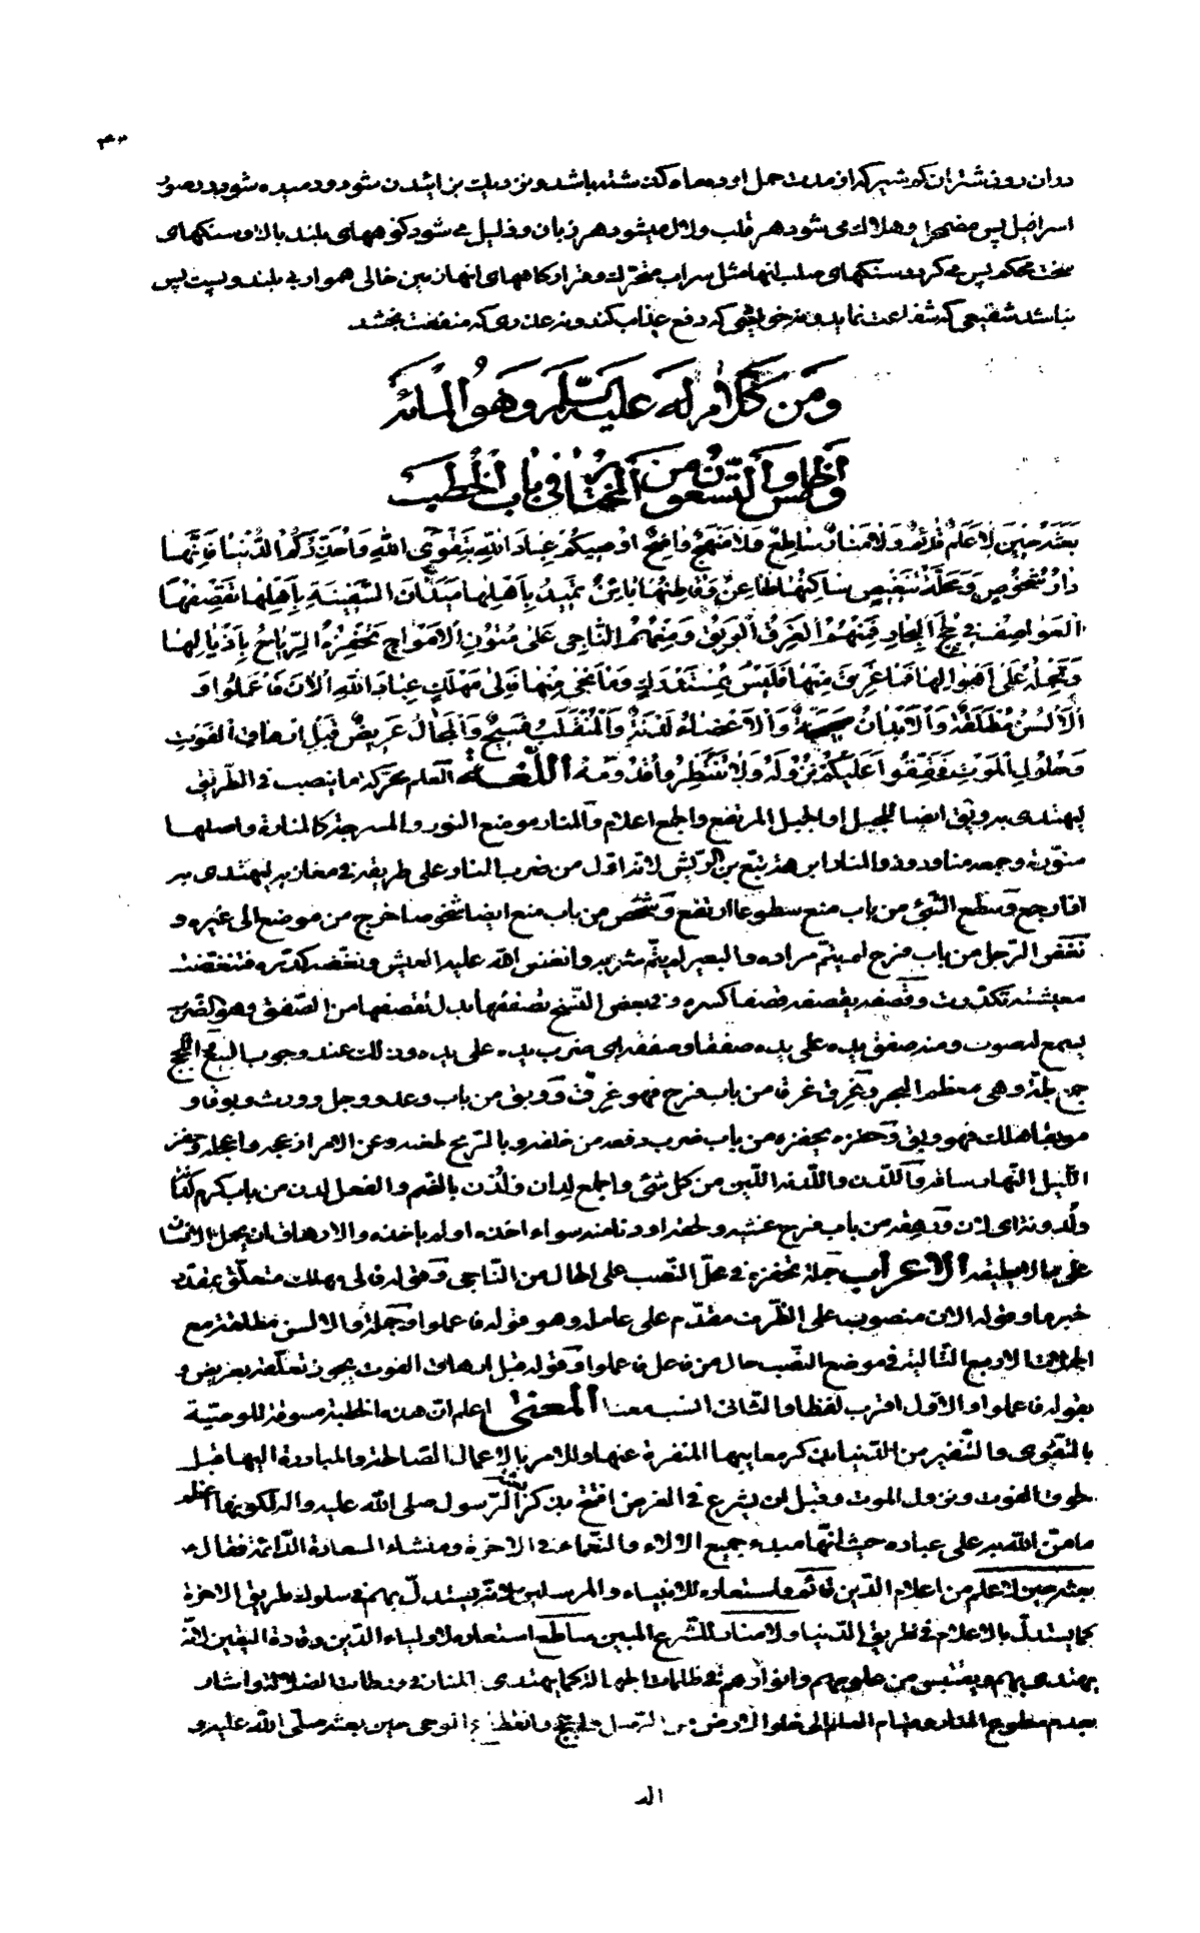 در ان روز شتران که شیر که از مدت حمل او ده ماه گذشته باشد و نزدیك بزائیدن شود و دمیده شود در صور
اسرافیل پس مضمحل و هلاك می شود هر قلب و لال میشود هر زبان و ذلیل می شود کوههای بلند بالا و سنکهای
سخت محکم پس می کردد سنکهای صلب انها مثل سراب متحرك و قرارکاههای انها زمین خالی هموار بی بلند و پست پس
نباشد شفیعی که شفاعت نماید و نه خویشی که دفع عذاب کند و نه عذری که منفعت بخشد
وَمَن كَلامٍ لَه عَلَيهِ السَّلَم وَهُوَ المائة
وَالخامس وَالتِّسعُون مِنَ المُختارِ في بابِ الخُطَب
بَعَثَهُ حينَ لا عَلَمٌ قائِمٌ وَلا مَنارٌ ساطِعٌ وَلا مَنهَجٌ واضِحٌ اوُصيكُم عِبادَ اللهِ بِتَقوَى اللهِ وَاُحَذِّرُكُمُ الدُّنيا فَاِنَّها
دارُ شُخُوصٍ وَمَحَلَّةُ تَنغيصٍ ساكِنُها ظاعِنٌ وَقاطِنُها بائِنٌ تَميدُ بِاَهلِها مَيَدانَ السَّفينَةِ بِاَهلِها تَقصِفُهَا
العَواصِفُ في لُجَجِ البِحارِ فَمِنهُمُ الغَرِقُ الوَبِقُ وَمِنهُمُ النّاجي عَلى مُتُونِ الاَمواجِ تَحفِزُهُ الرِّياحُ بِاَذيالِها
وَتَحمِلُهُ عَلى اَهوالِها فَما غَرِقَ مِنها فَلَيسَ بِمُستَدرَكٍ وَما نَجى مِنها فَاِلى مَهلَكٍ عِبادَ اللهِ الانَ فَاعمَلُوا وَ
الاَلسُنُ مُطلَقَةٌ وَالاَبدانُ صَحيحَةٌ وَالاَعضاءُ لَدنَةٌ وَالمُنقَلَبُ فَسيحٌ وَالمَجالُ عَريضٌ قَبلَ ارهاقِ الفَوتِ
وَحُلُولِ المَوتِ فَحَقِّقُوا عَلَيكُم نُزُولَهُ وَلا تَنتَظِرُوا قُدُومَهُ اللّغة العلم محرّكة ما ينصب فى الطّريق
ليهتدى به ويق ايضا للجبل او الجبل المرتفع والجمع اعلام والمنار موضع النور والمسرجة كالمنارة واصلها
منورة وجمعه مناور والمنار ابن هذه تبّع بن الرّيش لانه اوّل من ضرب المنار على طريقه فى مغازيه ليهتدى به
اذا رجع وسطع الشّئ من باب منع سطوعا ارتفع وشخص من باب منع ايضا شخوصا خرج من موضع الى غيره و
نغص الرّجل من باب فرح لم يتمّ مراده والبعير لم يتمّ شربه وانغص الله عليه العيش ونغّصه كدّره فتنغّصت
معيشته تكدّرت وقصفه يقصفه قصفا كسره وفى بعض النّسخ تصفقها بدل تقصفها من الصّفق وهو الضّرب
يسمع له صوت ومنه صفق يده على يده صفقا وصفقة اى ضرب يده على يده وذلك عند وجوب البيع اللّجج
جمع لجّة وهى معظم البحر وغرق غرقا من باب فرح فهو غرق ووبق من باب وعد ووجل وورث وبوقا و
موبقا هلك فهو وبق وحفزه يحفزه من باب ضرب دفعه من خلفه وبالرّمح طعنه وعن الامر ازعجه واعجله وحفز
اللّيل النّهار ساقه واللّدن واللّدنة اللّين من كلّ شئ والجمع لدان ولدن بالضّم والفعل لدن من باب كرم لدانة
ولدونة اى لان ورهقه من باب فرح غشيه ولحقه او دنا منه سواء اخذه او لم ياخذه والارهاق ان يحمل الانسان
على ما لا يطيقه الاعراب جملة تحفزه فى محلّ النّصب على الحال من النّاجى وقوله فالى مهلك متعلّق بمقدّر
خبر ما وقوله الان منصوب على الظّرف مقدّم على عامله وهو قوله فاعملوا وجملة والالسن مطلقة مع
الجملات الاربع التّالية فى موضع النّصب حال من فاعل فاعملوا وقوله قبل ارهاق الفوت يجوز تعلّقه بعريض و
بقوله فاعملوا والاوّل اقرب لفظا والثانى انسب معنا المعنى اعلم ان هذه الخطبة مسوقة للوصيّة
بالتّقوى والتّنفير من الدّنيا بذكر معايبها المنفّرة عنها وللامر بالاعمال الصّالحة والمبادرة اليها قبل
لحوق الفوت ونزول الموت وقبل ان يشرع فى الغرض افتتح بذكر بعثة الرّسول صلى الله عليه واله لكونها اعظم
ما منّ الله به على عباده حيث انّها مبدء جميع الالاء والنّعماء فى الاخرة ومنشاء السعادة الدّائمة فقال
بعثه حين لا علم من اعلام الدّين قائم واستعاره للانبياء والمرسلين لانّه يستدلّ بهم فى سلوك طريق الاخرة
كما يستدلّ بالاعلام فى طريق الدّنيا ولا منار للشّرع المبين ساطع استعاره لاولياء الدّين وقادة اليقين لانّه
يهتدى بهم ويقتبس من علومهم وانوارهم فى ظلمات الجهالة كما يهتدى بالمنار فى ظلمات الضلالة واشار
بعدم سطوع المنار وقيام العلم الى خلوّ الارض من الرّسل والحجج وانقطاع الوحى حين بعثه صلّى الله عليه و
اله